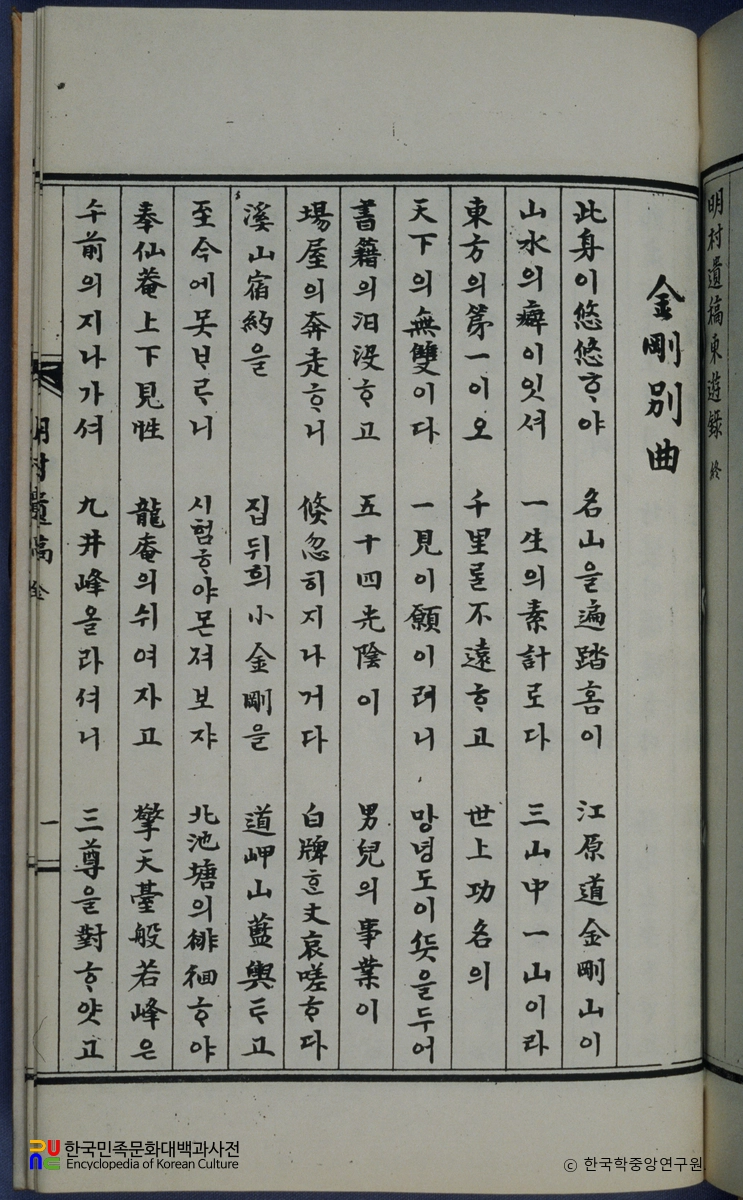 明村遺稿東遊錄 終
金剛別曲
此身이悠悠ᄒᆞ야 名山을遍踏홈이 江原道金剛山이
山水의癖이잇셔 一生의素計로다 三山中一山이라
東方의第一이오 千里를不遠ᄒᆞ고 世上功名의
天下의無雙이다 一見이願이려니 망녕도이ᄯᅳᆺ을두어
書籍의汩沒ᄒᆞ고 五十四光陰이 男兒의事業이
場屋의奔走ᄒᆞ니 倏忽히지나거다 白牌ᄒᆞᆫ丈哀嗟ᄒᆞ다
溪山宿約을 집뒤희小金剛을 道岬山藍輿ᄐᆞ고
至今에못ᄇᆞᄅᆞ니 시험ᄒᆞ야몬져보쟈 北池塘의徘徊ᄒᆞ야
奉仙菴上下見性 龍庵의쉬여자고 擎天臺般若峰은
午前의지나가셔 九井峰올라셔니 三尊을對ᄒᆞ얏고
明村遺稿
一
한국민족문화대백과사전
Encyclopedia of Korean Culture
© 한국학중앙연구원